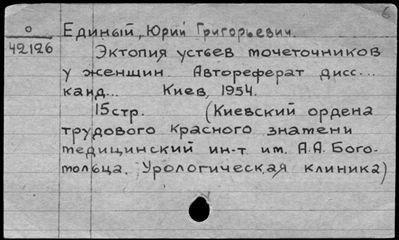 6
О
42126
Единый, Юрий Григорьевич.
Эктопия устьев мочеточников
у женщин. Автореферат дисс...
канд... Киев, 1954.
15 стр. (Киевский ордена
трудового Красного знамени
медицинский ин-т им. А.А. Бого-
мольца. Урологическая клиника)